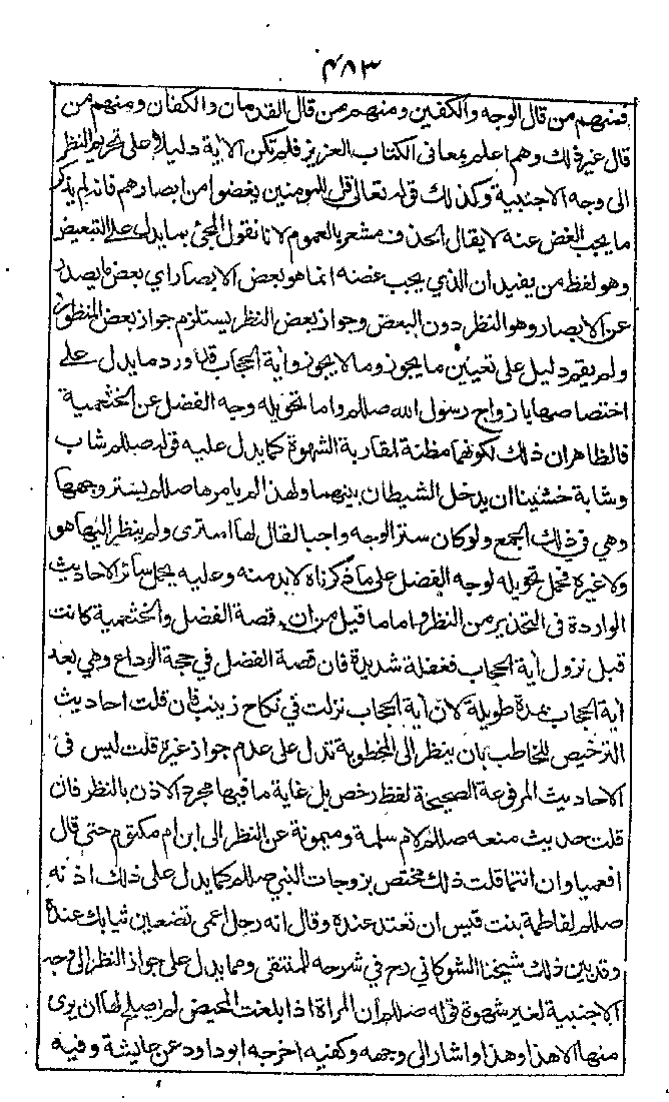 ٤٨٣
فمنهم من قال الوجه والكفين ومنهم من قال القدمان والكفان ومنهم من
قال غير ذلك وهم اعلم بمعاني الكتاب العزيز فلم تكن الاية دليلا على تحريم النظر
الى وجه الاجنبية وكذلك قوله تعالى قل للمومنين يغضوا من ابصارهم فانه لم يذكر
ما يجب الغض عنه لا يقال الحذف مشعر بالعموم لانا نقول المجئ بما يدل على التبعيض
وهو لفظ من يفيد ان الذي يجب غضه انما هو بعض الابصار اي بعض ما يصدر
عن الابصار وهو النظر دون البعض وجواز بعض النظر يستلزم جواز بعض المنظور
ولم يقم دليل على تعيين ما يجوز وما لا يجوز واية الحجاب قد ورد ما يدل على
اختصاصها بازواج رسول الله صللم واما تحويله وجه الفضل عن الخثعمية
فالظاهر ان ذلك لكونهما مظنة لمقاربة الشهوة كما يدل عليه قوله صللم شاب
وشابة خشينا ان يدخل الشيطان بينهما ولهذا لم يامرها صللم بستر وجهها
وهي في ذلك الجمع ولو كان ستر الوجه واجبا لقال لها استري ولم ينظر اليها هو
ولا غيره فحمل تحويله لوجه الفضل على ما ذكرناه لا بد منه وعليه يحمل سائر الاحاديث
الواردة في التحذير من النظر واما ما قيل من ان قصة الفضل والخثعمية كانت
قبل نزول اية الحجاب فغفلة شديدة فان قصة الفضل في حجة الوداع وهي بعد
اية الحجاب بمدة طويلة لان اية الحجاب نزلت في نكاح زينب فان قلت احاديث
الترخيص للخاطب بان ينظر الى المخطوبة تدل على عدم جواز غيره قلت ليس في
الاحاديث المرفوعة الصحيحة لفظ رخص بل غاية ما فيها مجرد الاذن بالنظر فان
قلت حديث منعه صللم لام سلمة وميمونة عن النظر الى ابن ام مكتوم حتى قال
افعمياوان انتما قلت ذلك مختص بزوجات النبي صللم كما يدل على ذلك اذنه
صللم لفاطمة بنت قيس ان تعتد عنده وقال انه رجل اعمى تضعين ثيابك عنده
وقد بين ذلك شيخنا الشوكاني رح في شرحه للمنتقى ومما يدل على جواز النظر الى وجه
الاجنبية لغير شهوة قوله صللم ان المراة اذا بلغت المحيض لم يصلح لها ان يرى
منها الا هذا وهذا واشار الى وجهه وكفيه اخرجه ابو داود عن عايشة وفيه